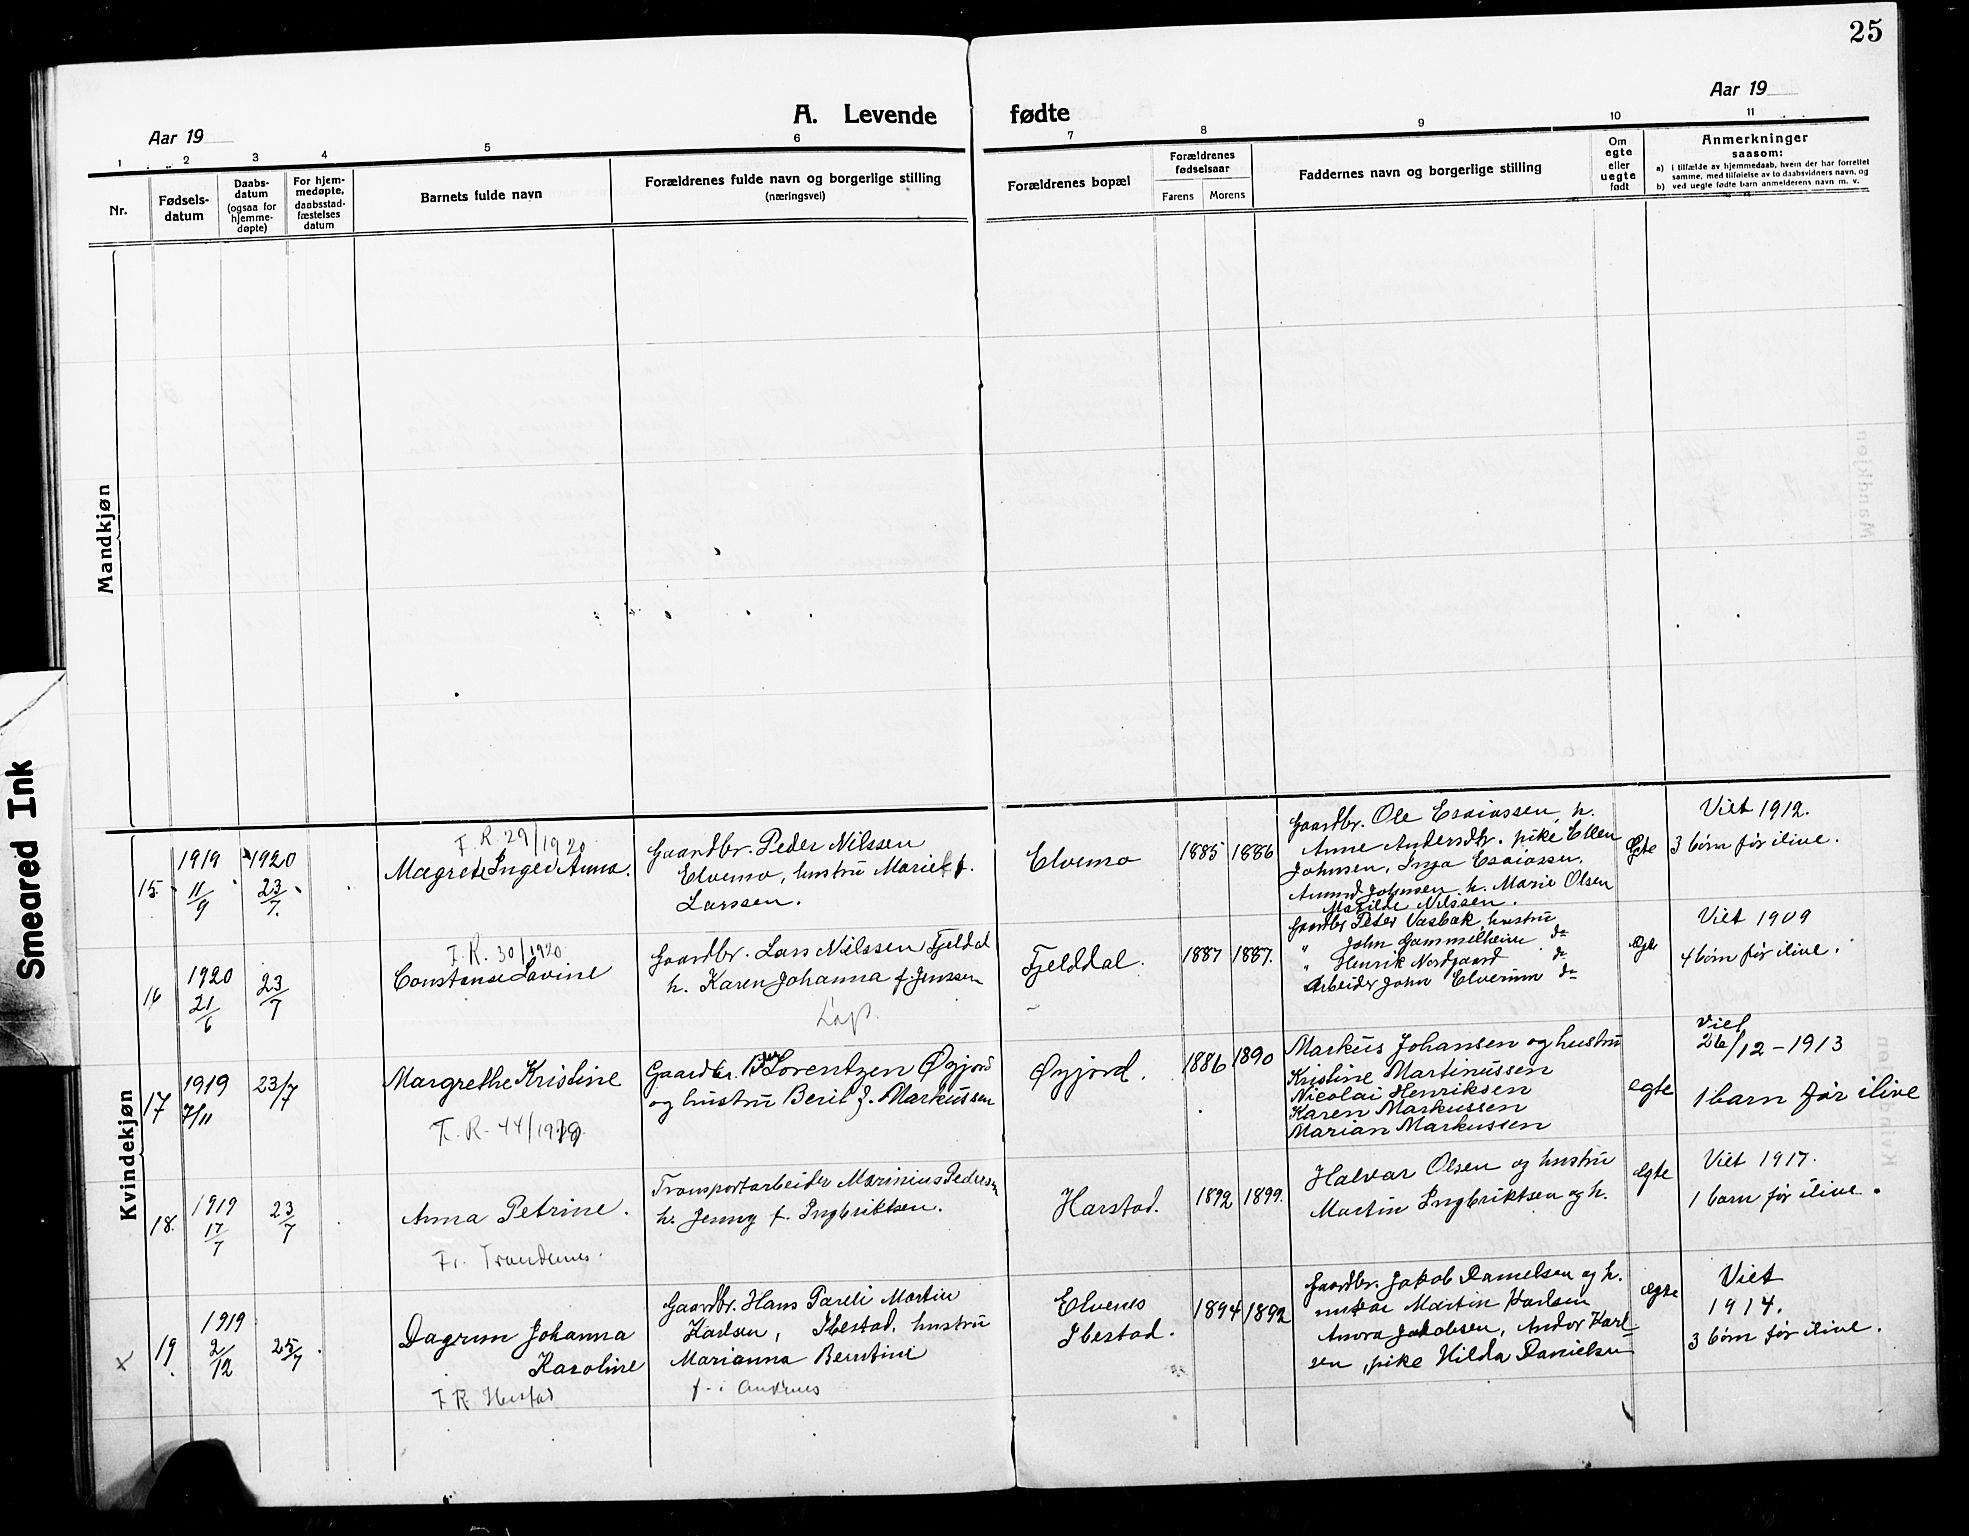 25
Aar 19
Aar 19
A. Levende fødte
1 2 3 4 5 6 7 8 9 10 11
Nr.
Fødsels-
datum
Daabs-
datum
(ogsaa for
hjemme-
døpte)
For hjem-
medøpte,
daabsstad-
fæstelses
datum
Barnets fulde navn
Forældrenes fulde navn og borgerlige stilling
(næringsvei)
Forældrenes bopæl
Forældrenes
fødselsaar
Farens Morens
Faddernes navn og borgerlige stilling
Om
egte
eller
uegte
født
Anmerkninger
saasom:
a) i tilfælde av hjemmedaab, hvem der har forrettet
samme, med tilføielse av to daabsvidners navn, og
b) ved uegte fødte barn anmelderens navn m. v.
Mandkjøn
Smeared Ink
Kvindekjøn
15.
1919
11/9
1920
23/7.
F. R. 29/1920
Magrete Inged Anna.
Gaardbr. Peder Nilssen
Elvemo, hustru Marie f.
Larssen.
Elvemo
1885 1886
Gaardbr. Ole Esaiassen, h.
Anne Andersdtr. pike Ellen
Johnsen, Inga Esaiassen,
Amund Johnsen h. Marie Olsen
Matilde Nilssen.
Egte
Viet 1912.
3 børn før ilive.
16
1920
21/6
23/7
F. R. 30/1920
Constanse Lovine
Gaardbr. Lars Nilssen Fjeldal
h. Karen Johanna f. Jenssen
Lap.
Fjelddal.
1887 1887.
Gaardbr Peter Vasbak, hustru
" John Gammelheim do
" Henrik Nordgaard do
Arbeider John Elverum do
Egte
Viet 1909
4 børn før ilive.
17
1919
7/11
23/7
Margrethe Kristine
F. R. 44/1919
Gaardbr. Peder Lorentzen Øyjord
og hustru Berit f. Markussen
Øyjord.
1886 1890
Markus Johansen og hustru
Kristine Martinussen
Nicolai Henriksen
Karen Markussen
Marian Markussen
egte
Viet
26/12-1913
1 barn før ilive
18.
1919
17/7
23/7
Anna Petrine.
Fr. Trondenes.
Transportarbeider Marinius Pedersen
h. Jenny f. Ingbriktsen.
Harstad.
1892 1899.
Halvar Olsen og hustru
Martin Ingbriktsen og h.
ægte
Viet 1917.
1 barn før ilive.
x
19.
1919
2/12
25/7
Dagrun Johanna
Karoline
F R Ibestad
Gaardbr. Hans Pareli Martin
Karlsen, Ibestad, hustru
Marianna Berntine
f. Andrews
Elvenes
Ibestad.
1894 1892
Gaardbr. Jakob Danielsen og h.
Martin Karlsen
Anora Jakobsen, Andor Karl-
sen, pike Hilda Danielsen
ægte
Viet
1914.
3 børn før ilive.